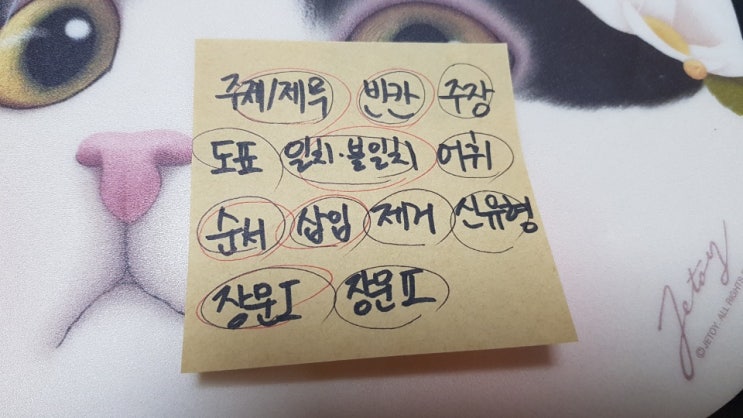 주제/제목 빈칸 주장
도표 일치·불일치 어휘
순서 삽입 제거 신유형
장문I 장문II
Jetoy
©JETOY. ALL RIGHTS